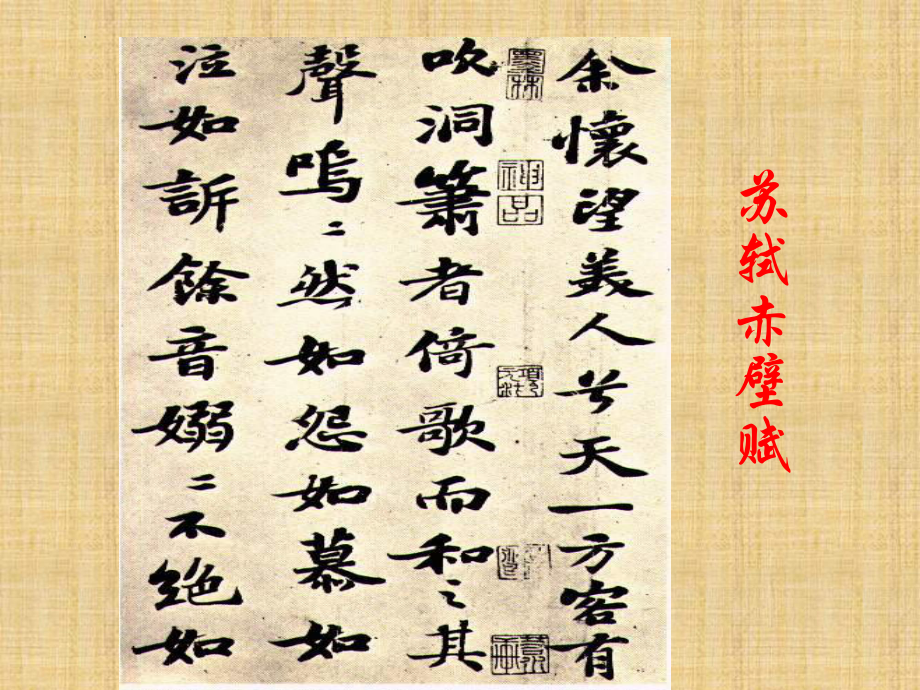 苏轼赤壁赋
余懷望美人兮天一方客有
吹洞簫者倚歌而和之其
聲嗚〻然如怨如慕如
泣如訴餘音嫋〻不絕如
墨林
神品